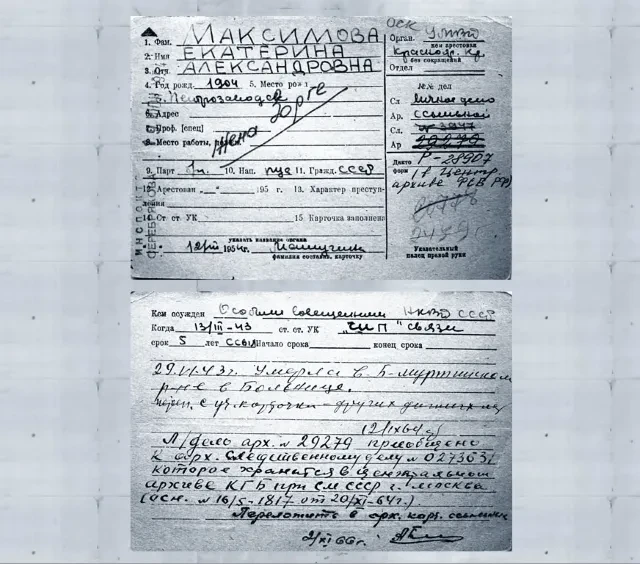 1. Фам. МАКСИМОВА
2. Имя ЕКАТЕРИНА
3. Отч. АЛЕКСАНДРОВНА
4. Год рожд. 1904 5. Место рожд.
г. Петрозаводск
6. Адрес
7. Проф. [спец]
8. Место работы,
Жена Зорге
9. Парт б/п. 10. Нац. 11. Гражд. СССР
12. Арестован „__“ 195 г. 13. Характер преступ-
ления
14. Ст. ст. УК 15 Карточка заполнена
указать название органа
12/III 1954 г.
фамилия составл. карточку
Орган.
кем арестован
Краснояр. Кр.
без сокращений
Отдел
№№ дел
Сл личное дело
Ар. ссыльной
Сл. № 3947
Ар 29279
Дакто Р-28907
форм (в Центр.
архиве ФСБ РФ)
Указательный
палец правой руки
Кем осужден Особым Совещанием НКВД СССР
Когда 13/III-43 ст. ст. УК связи
срок 5 лет ссыл Начало срока конец срока
Умерла в Б-Муртинском
р-не в Больнице.
с уч. карточки - других данных
Л/дело арх. № 29279 приобщено
к арх. следственному делу №
которое хранится в центральном
архиве КГБ при СМ СССР г. Москва
(осн. № 16/5-1817 от 20/XI-64 г.)
Переложить в арх. карт. ссыльных
2/XI 66 г.